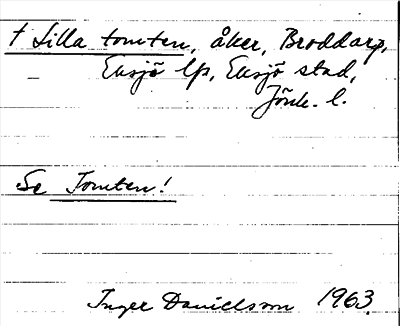 † Lilla tomten, åker, Broddarp,
Eksjö lfs, Eksjö stad,
Jönk. l.
Se Tomten!
Inger Danielsson 1963